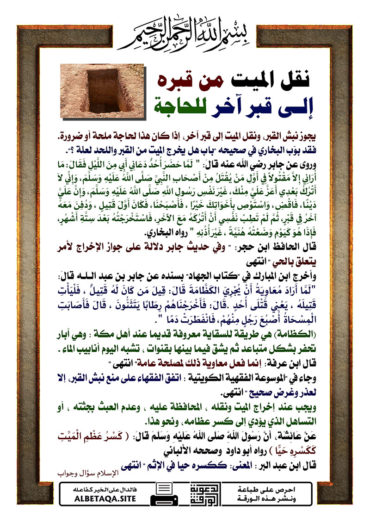 بسم الله الرحمن الرحيم
نقل الميت من قبره
إلى قبر آخر للحاجة
يجوز نبش القبر، ونقل الميت إلى قبر آخر، إذا كان هذا لحاجة ملحة أو ضرورة.
فقد بوب البخاري في صحيحه "باب هل يخرج الميت من القبر واللحد لعلة ؟".
وروى عن جابر رضي الله عنه قال: " لَمَّا حَضَرَ أُحُدٌ دَعَانِي أَبِي مِنَ اللَّيْلِ فَقَالَ: مَا
أُرَانِي إِلاَّ مَقْتُولاً فِي أَوَّلِ مَنْ يُقْتَلُ مِنْ أَصْحَابِ النَّبِيِّ صَلَّى اللَّهُ عَلَيْهِ وَسَلَّمَ، وَإِنِّي لاَ
أَتْرُكُ بَعْدِي أَعَزَّ عَلَيَّ مِنْكَ، غَيْرَ نَفْسِ رَسُولِ اللَّهِ صَلَّى اللَّهُ عَلَيْهِ وَسَلَّمَ، وَإِنَّ عَلَيَّ
دَيْنًا، فَاقْضِ، وَاسْتَوْصِ بِأَخَوَاتِكَ خَيْرًا ، فَأَصْبَحْنَا، فَكَانَ أَوَّلَ قَتِيلٍ ، وَدُفِنَ مَعَهُ
آخَرُ فِي قَبْرٍ، ثُمَّ لَمْ تَطِبْ نَفْسِي أَنْ أَتْرُكَهُ مَعَ الآخَرِ، فَاسْتَخْرَجْتُهُ بَعْدَ سِتَّةِ أَشْهُرٍ،
فَإِذَا هُوَ كَيَوْمِ وَضَعْتُهُ هُنَيَّةً ، غَيْرَ أُذُنِهِ " رواه البخاري.
قال الحافظ ابن حجر: " وفي حديث جابر دلالة على جواز الإخراج لأمر
يتعلق بالحي " انتهى
وأخرج ابن المبارك في "كتاب الجهاد" بسنده عن جابر بن عبد الله قال:
"لَمَّا أَرَادَ مُعَاوِيَةُ أَنْ يُجْرِيَ الْكَظَّامَةَ قَالَ: قِيلَ مَنْ كَانَ لَهُ قَتِيلٌ ، فَلْيَأْتِ
قَتِيلَهُ ، يَعْنِي قَتْلَى أُحُدٍ .قَالَ: فَأَخْرَجْنَاهُمْ رِطَابًا يَتَثَنَّوْنَ ، قَالَ فَأَصَابَتِ
الْمِسْحَاةُ أُصْبُعَ رَجُلٍ مِنْهُمْ، فَانْفَطَرَتْ دَمًا ".
(الكظامة) هي طريقة للسقاية معروفة قديما عند أهل مكة ؛ وهي آبار
تحفر بشكل متباعد ثم يشق فيما بينها بقنوات ، تشبه اليوم أنابيب الماء .
قال ابن عرفة: إنما فعل معاوية ذلك لمصلحة عامة" انتهى
وجاء في "الموسوعة الفقهية الكويتية : اتفق الفقهاء على منع نبش القبر، إلا
لعذر وغرض صحيح " انتهى.
ويجب عند إخراج الميت ونقله ، المحافظة عليه ، وعدم العبث بجثته ، أو
التساهل الذي يؤدي إلى كسر عظامه، ونحو هذا.
عَنْ عَائشَة، أَنَّ رَسُولَ اللَّهِ صَلَّى اللَّهُ عَلَيْهِ وَسَلَّمَ قَالَ: ( كَسْرُ عَظْمِ الْمَيِّتِ
كَكَسْرِهِ حَيًّا ) رواه أبو داود وصححه الألباني
قال ابن عبد البر : المعنى: ككسره حيا في الإثم " انتهى
الإسلام سؤال وجواب
احرص على طباعة
ونشر هذه الورقة
الدعوية
الورقة
فالدال على الخير كفاعله
ALBETAQA.SITE